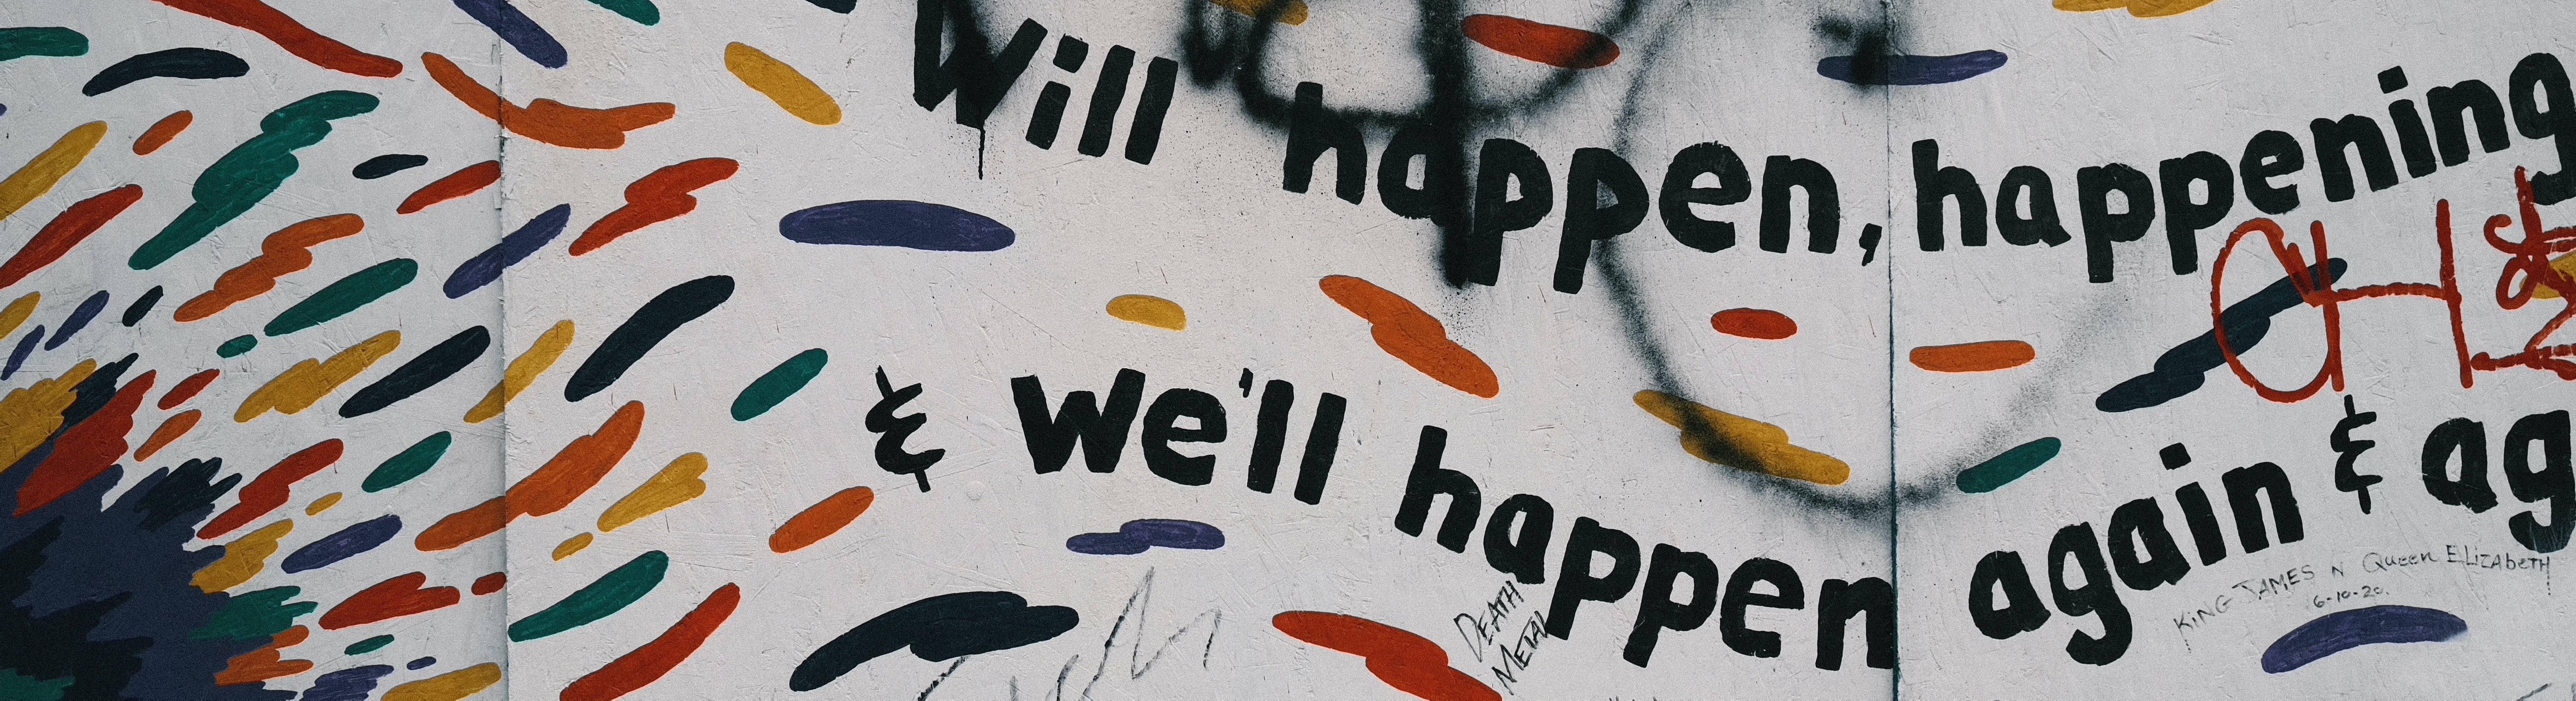 Will happen, happening
& we'll happen again & ag
DEATH
METAL
KING JAMES N Queen ELIZAbETH
6-10-20.